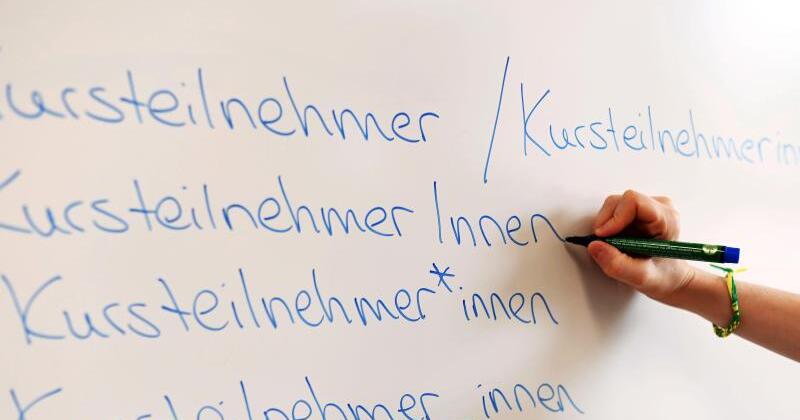 Kursteilnehmer / Kursteilnehmerinn
KursteilnehmerInnen
Kursteilnehmer*innen
Kursteilnehmer innen